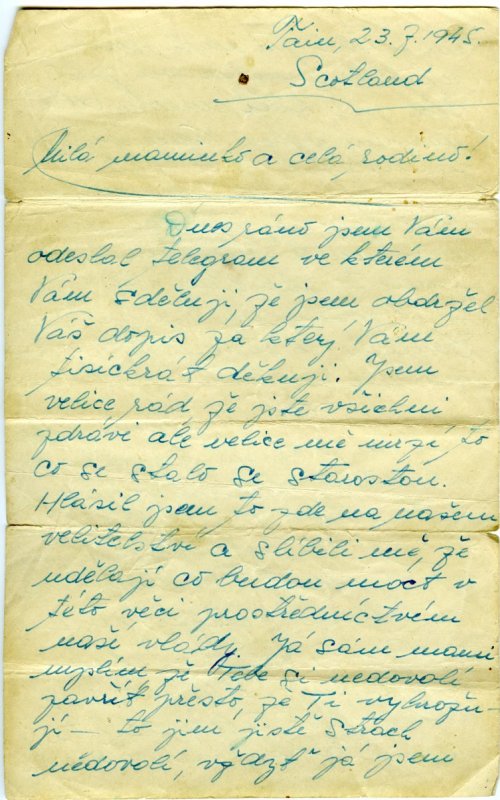 Tain, 23.7.1945.
Scotland
Milá maminko a celá rodino!
Dnes ráno jsem Vám
odeslal telegram ve kterém
Vám sděluji, že jsem obdržel
Váš dopis za který Vám
tisíckrát děkuji. Jsem
velice rád že jste všichni
zdrávi ale velice mě mrzí to
co se stalo se starostou.
Hlásil jsem to zde na našem
velitelství a slíbili mě, že
udělají co budou moct v
této věci prostřednictvém
naší vlády. Já sám mami
myslím že Tebe si nedovolí
zavřít přesto, že Ti vyhrožu-
jí - to jim jistě strach
nedovolí, vždyť já jsem